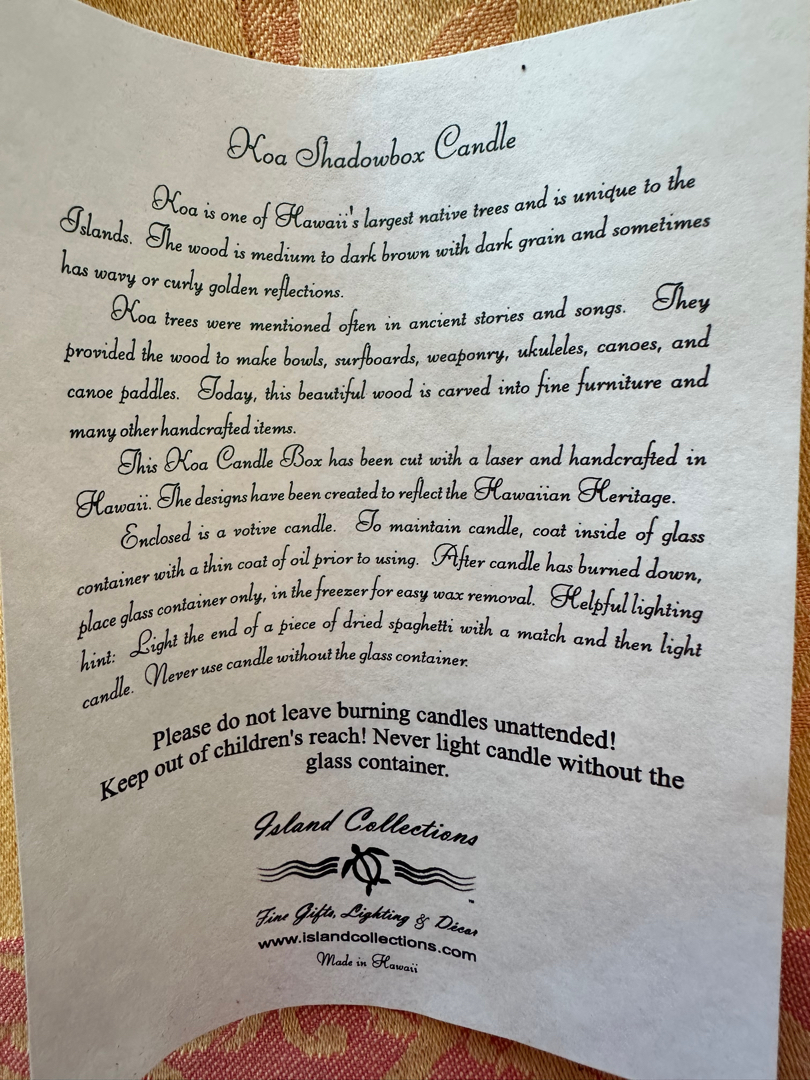 Koa Shadowbox Candle
Koa is one of Hawaii's largest native trees and is unique to the
Islands. The wood is medium to dark brown with dark grain and sometimes
has wavy or curly golden reflections.
Koa trees were mentioned often in ancient stories and songs. They
provided the wood to make bowls, surfboards, weaponry, ukuleles, canoes, and
canoe paddles. Today, this beautiful wood is carved into fine furniture and
many other handcrafted items.
This Koa Candle Box has been cut with a laser and handcrafted in
Hawaii. The designs have been created to reflect the Hawaiian Heritage.
Enclosed is a votive candle. To maintain candle, coat inside of glass
container with a thin coat of oil prior to using. After candle has burned down,
place glass container only, in the freezer for easy wax removal. Helpful lighting
hint: Light the end of a piece of dried spaghetti with a match and then light
candle. Never use candle without the glass container.
Please do not leave burning candles unattended!
Keep out of children's reach! Never light candle without the
glass container.
Island Collections
™
Fine Gifts, Lighting & Décor
www.islandcollections.com
Made in Hawaii